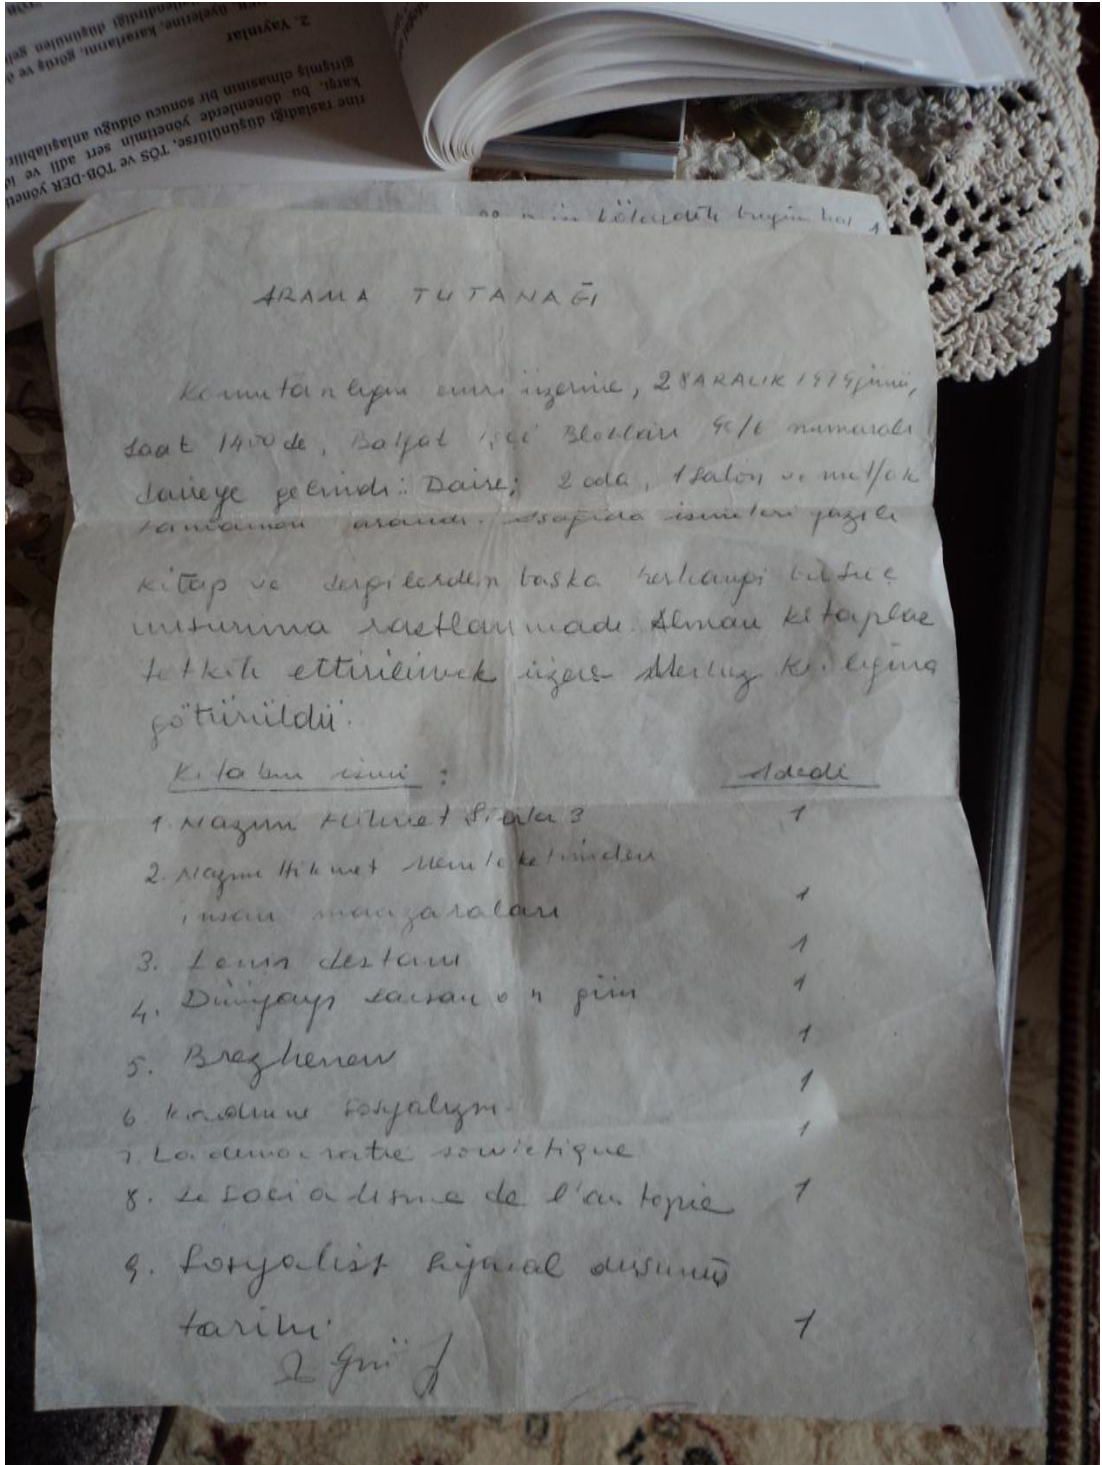 2. Yayınlar
girişmiş olmasının bir sonucu olduğu
karşı, bu dönemlerde yönetimin sert adli ve
rine rastladığı düşünülürse, TÖS ve TÖB-DER
ARAMA TUTANAĞI
Komutanlığın emri üzerine, 28 ARALIK 1979 günü,
Saat 1400 de, Balgat işçi Blokları 96/6 numaralı
daireye gelindi: Daire; 2 oda, 1 salon ve mutfak
tamamen arandı. Aşağıda isimleri yazılı
kitap ve dergilerden başka herhangi bir suç
unsuruna rastlanmadı. Alınan kitaplar
tetkik ettirilmek üzere Merkez K.lığına
götürüldü.
Kitabın ismi : Adedi
1. Nazım Hikmet Şiirler 3 1
2. Nazım Hikmet Memleketimden
insan manzaraları 1
3. Lenin destanı 1
4. Dünyayı sarsan on gün 1
5. Brezhenev 1
6. kadın ve sosyalizm 1
7. La democratie sowietique 1
8. Le socialisme de l'au topie 1
9. Sosyalist siyasal düşünüş
tarihi 1